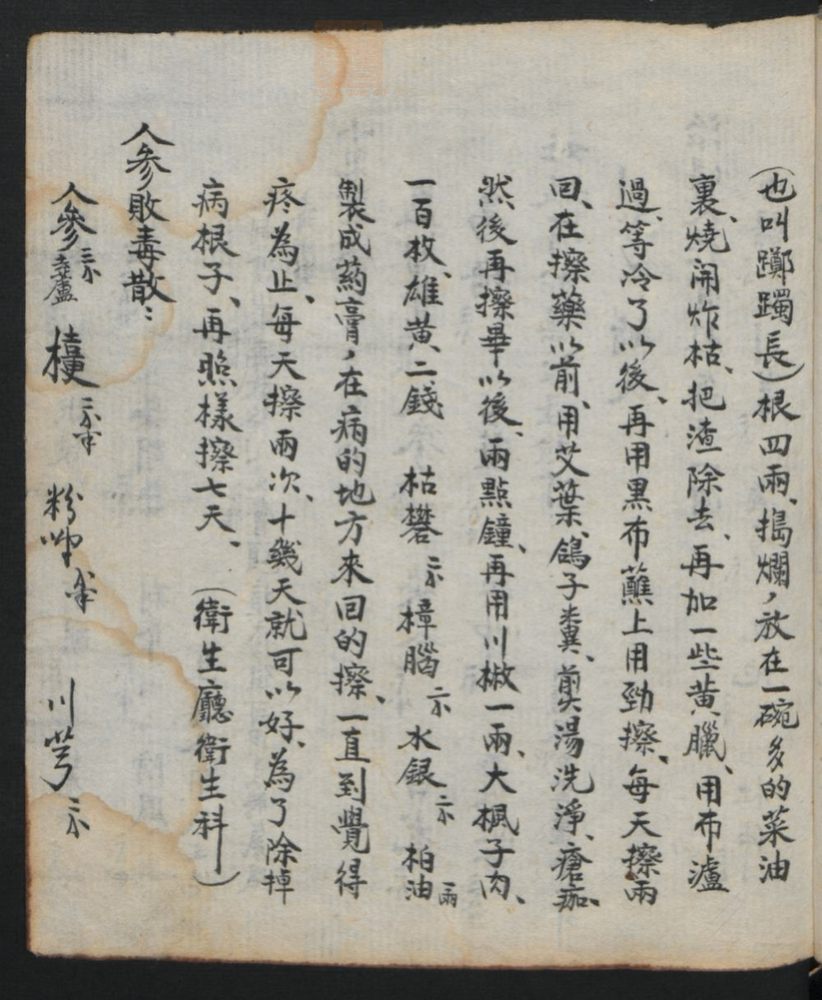 （也叫躑躅長）根四兩、搗爛，放在一碗多的菜油
裏、燒開炸枯、把渣除去、再加一些黄臘、用布瀘
過、等冷了以後、再用黑布蘸上用勁擦、每天擦兩
回、在擦藥以前、用艾葉、鴿子糞、煎湯洗淨、瘡痂、
然後再擦畢以後、兩點鐘、再用川椒一兩、大楓子肉、
一百枚、雄黄、二錢 枯礬 樟腦 水銀 柏油 兩
製成葯膏，在病的地方來回的擦、一直到覺得
疼為止、每天擦兩次、十幾天就可以好、為了除掉
病根子、再照樣擦七天、（衛生廳衛生科）
人參敗毒散：
人參 蘆 粉 川芎